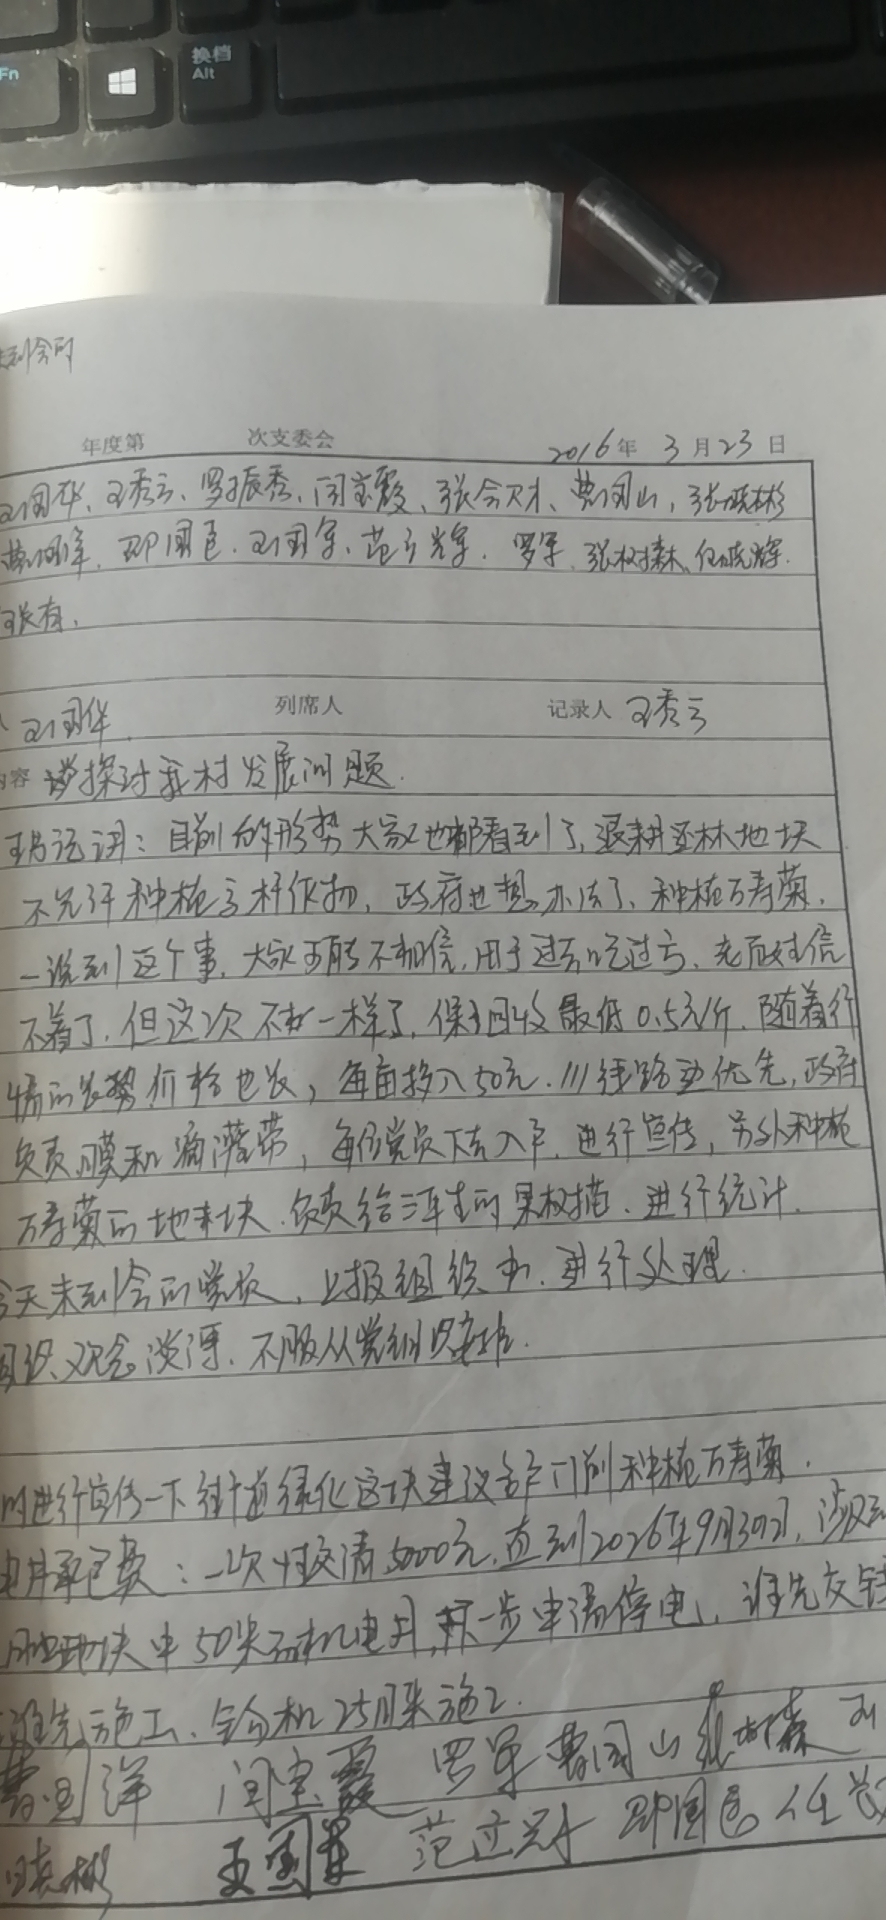 Fn
换档
Alt
未到会的
年度第 次支委会 2016年3月23日
刘国华、王秀云、罗振秀、闫宝霞、张会才、曹国山，张晓彬
曹国洋、邸国良、刘国军、范立辉、罗军、张树森、任晓辉.
张有.
刘国华 列席人 记录人 王秀云
内容 探讨我村发展问题.
书记讲：目前的形势大家也都看到了，退耕还林地块
不允许种植高杆作物，政府也想办法了、种植万寿菊，
一说到这个事，大家可能不相信，由于过去吃过亏、
不着了，但这次不一样了，保护回收最低0.5元/斤，随着行
情的长势价格也长，每亩投入50元.111线路边优先，政府
负责膜和滴灌带，每位党员下去入户，进行宣传，另外种植
万寿菊的地块，负责给三年生的果树苗、进行统计.
今天未到会的党员，上报组织办、进行处理.
组织观念淡薄、不服从党组织安排.
的进行宣传一下街道绿化这块建议各户门前种植万寿菊.
电井承包费：一次性交清5000元，直到2026年9月30日，涉及到
地块中50米 机电井，下一步申请停电，谁先交钱
谁先施工、钻机25日来施工.
曹国洋 闫宝霞 罗军 曹国山 张树森 刘
晓彬 王国军 范立 邸国良 任